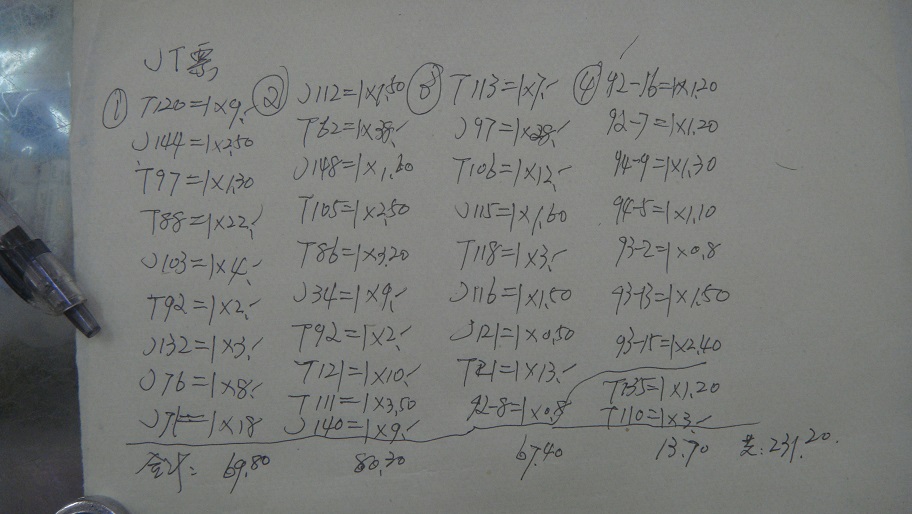 JT票
① T120=1×9.-
J144=1×2.50
T97=1×1.30
T88=1×22.-
J103=1×4.-
T92=1×2.-
J132=1×3.-
J76=1×8.-
J71=1×18
② J112=1×1.50
T62=1×38.-
J148=1×1.60
T105=1×2.50
T86=1×3.20
J34=1×9.-
T92=1×2.-
T121=1×10.-
T111=1×3.50
J140=1×9.-
③ T113=1×7.-
J97=1×28.-
T106=1×12.-
J115=1×1.60
T118=1×3.-
J116=1×1.50
J121=1×0.50
T21=1×13.-
92-8=1×0.8
④ 92-16=1×1.20
92-7=1×1.20
94-9=1×1.30
94-5=1×1.10
93-2=1×0.8
93-13=1×1.50
93-15=1×2.40
T135=1×1.20
T110=1×3.-
合计: 69.80 80.30 67.40 13.70 共:231.20.